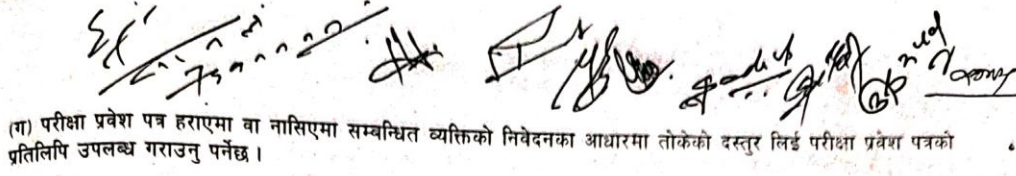 (ग) परीक्षा प्रवेश पत्र हराएमा वा नासिएमा सम्बन्धित व्यक्तिको निवेदनका आधारमा तोकेको दस्तुर लिई परीक्षा प्रवेश पत्रको
प्रतिलिपि उपलब्ध गराउनु पर्नेछ ।